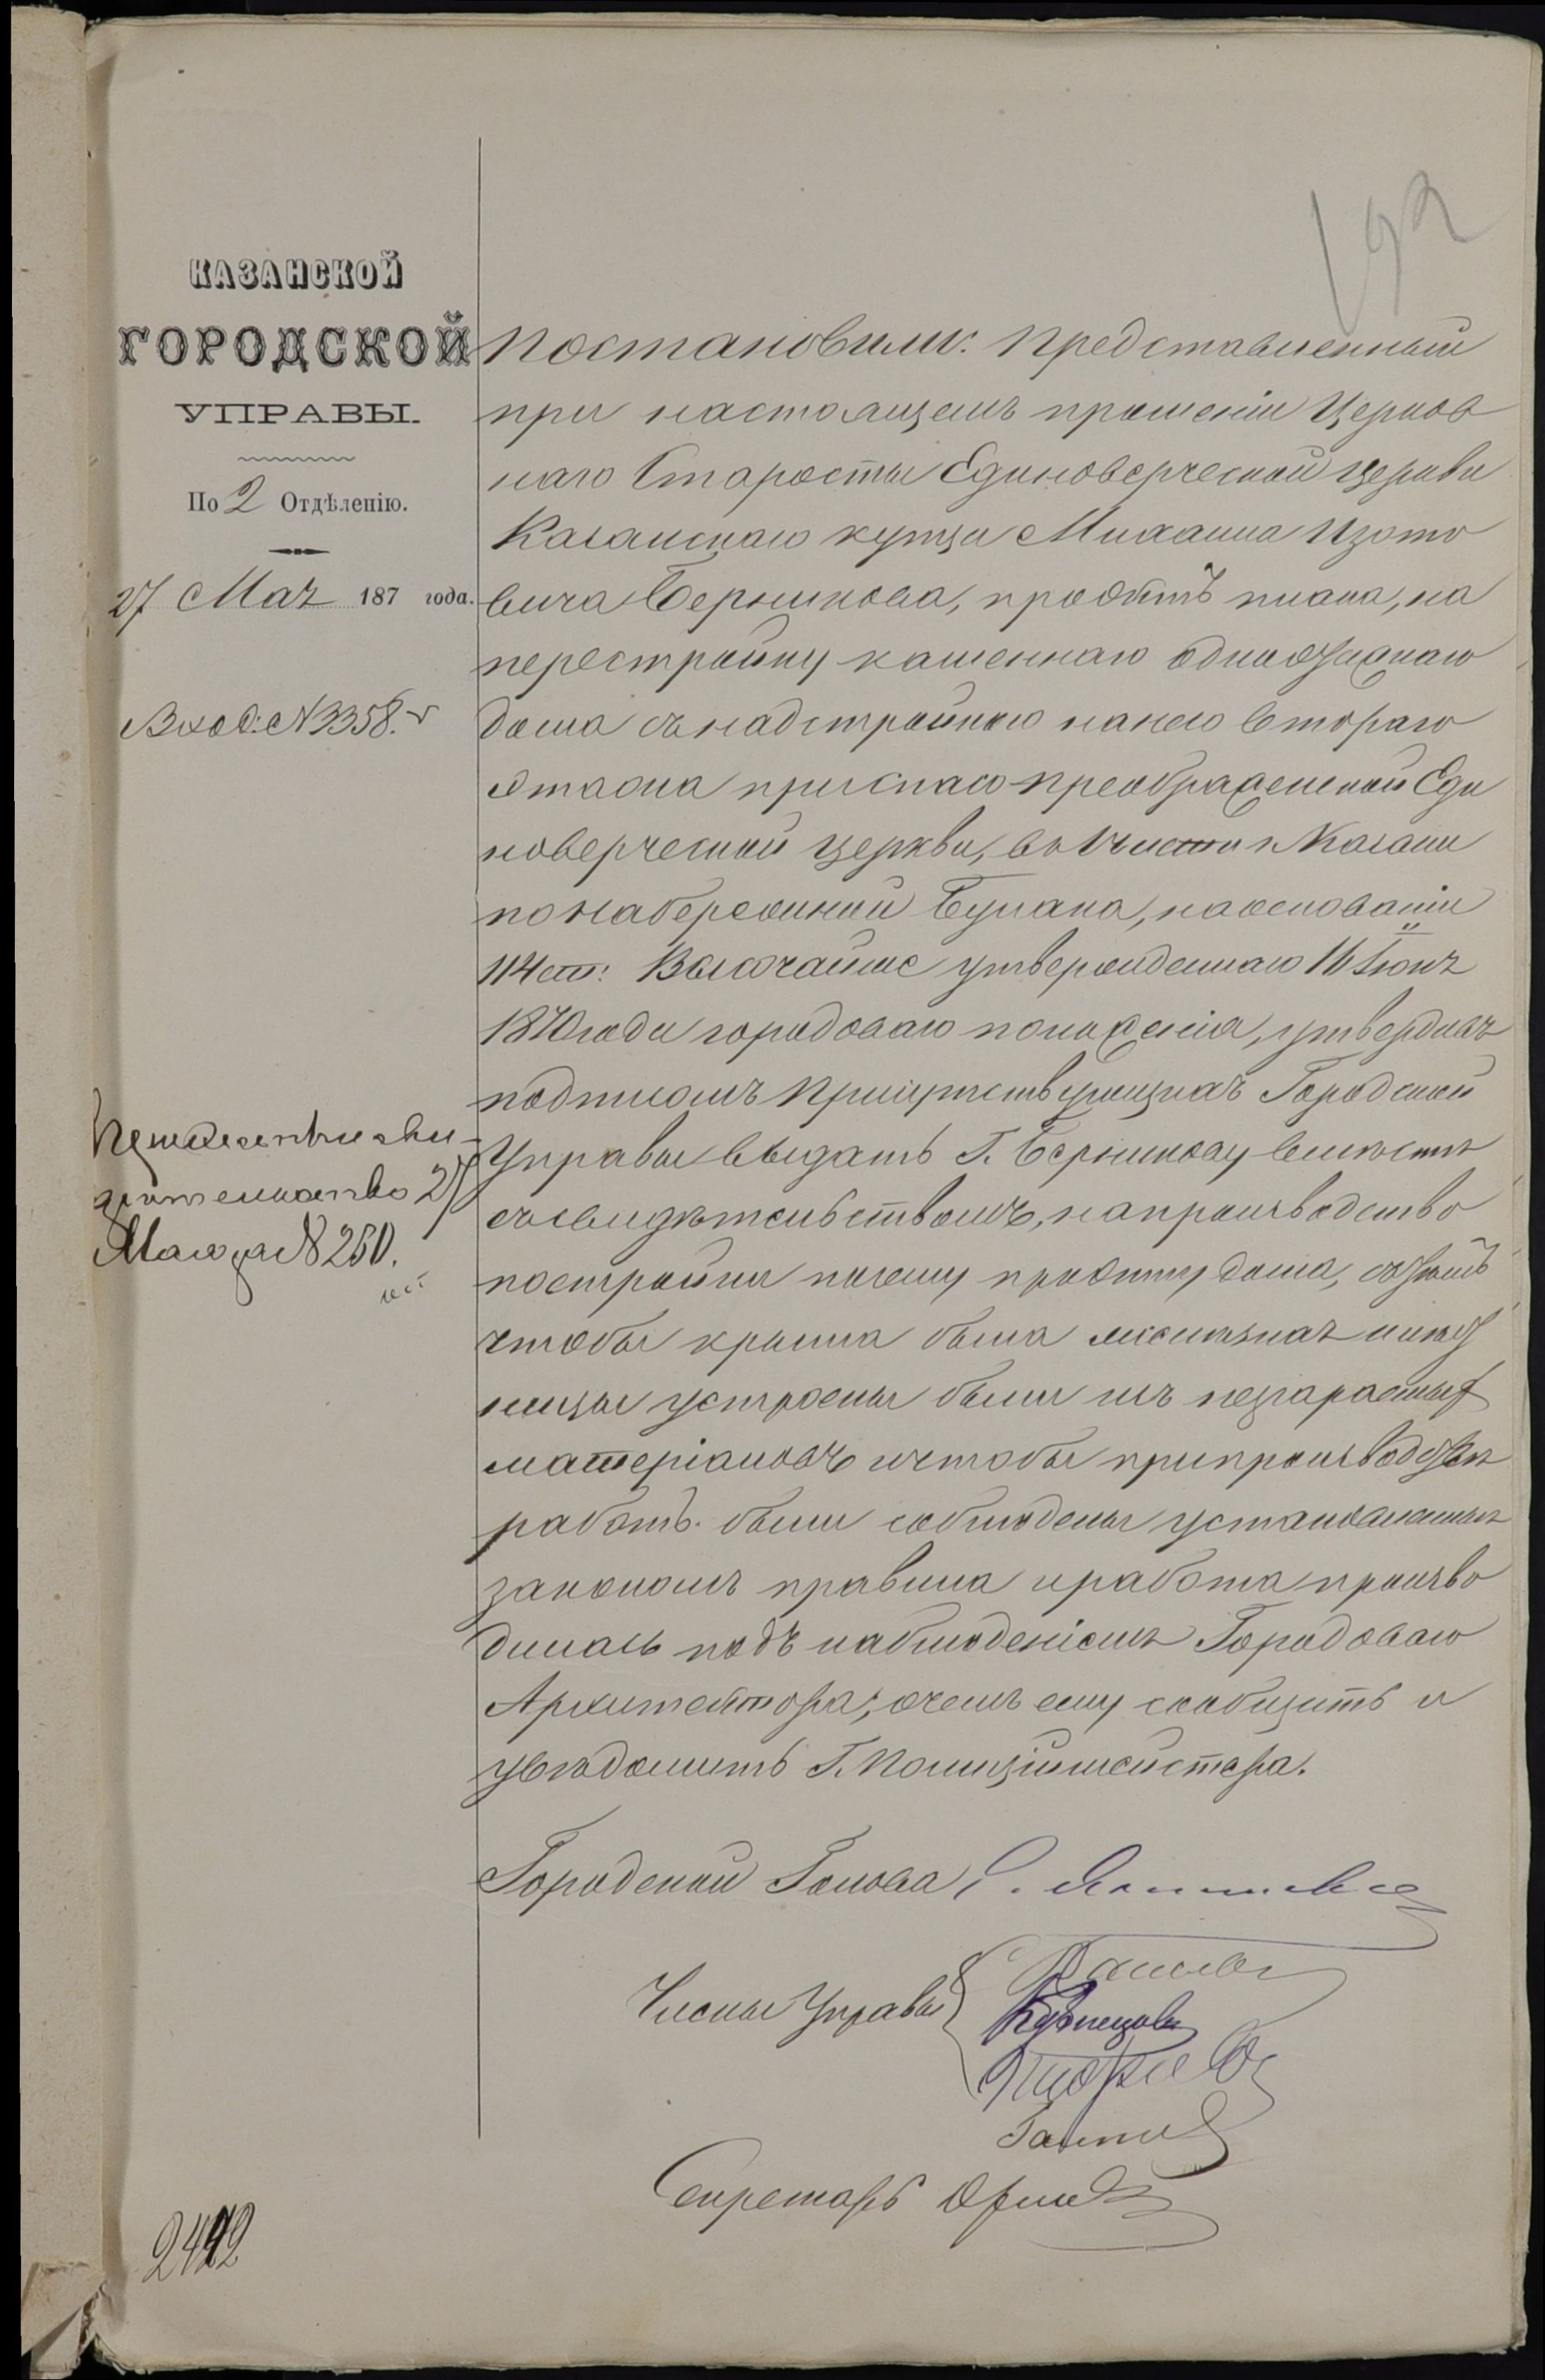 192
КАЗАНСКОЙ
ГОРОДСКОЙ
УПРАВЫ.
По 2 Отдѣленію.
27 Мая 187 года.
Вход: №3358.
постановили: представленный
при настоящемъ прошеніи Церков
наго Старосты Единоверческой церкви
Казанскаго купца Михаила Изото
вича Беркинова, проэктъ плана, на
перестройку каменнаго одноэтажнаго
дома съ надстройкою на него втораго
этажа при Спасо-Преображенской Еди
новерческой церкви, во части г. Казани
по набережной Булака, на основаніи
114 ст: Высочайше утвержденнаго 16 Іюня
1870 года городоваго положенія, утвердивъ
подписомъ присутствующихъ Городской
Управы выдать Г. Беркинову вместе
съ свидѣтельствомъ, на производство
постройки по сему проэкту дома, съ тѣмъ
чтобы крыша была желѣзная и
устроены были изъ несгараемыхъ
матеріаловъ и чтобы при производстве
работъ были соблюдены установленныя
закономъ правила и работа произво
дилась подъ наблюденіемъ Городоваго
Архитектора, о чемъ ему сообщить и
увѣдомить Г. Полиціймейстера.
свидѣтельство 27
Мая за №250.
Городской Голова
Члены Управы
Кузнецовъ
Секретарь
2492